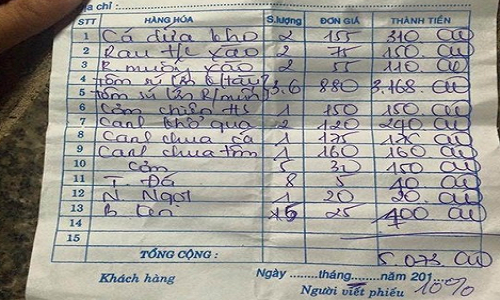 địa chỉ :
STT HÀNG HÓA S.lượng ĐƠN GIÁ THÀNH TIỀN
1 Cá dứa kho 2 155 310.000
2 Rau t/c xào 2 75 150.000
3 R muống xào 2 55 110.000
4 Tôm sú lăn k/tây
5 Tôm sú lăn k/muối 3.6 880 3.168.000
6 Cơm chiên 1 150 150.000
7 Canh khổ qua 2 120 240.000
8 Canh chua cá 1 175 175.000
9 Canh chua tôm 1 160 160.000
10 Cơm 5 30 150.000
11 T. Đá 8 5 40.000
12 N Ngọt 1 20 20.000
13 B. Ken 25 400.000
14
15
TỔNG CỘNG : 5.073.000
Khách hàng Ngày ........tháng........năm 201....
Người viết phiếu 10%